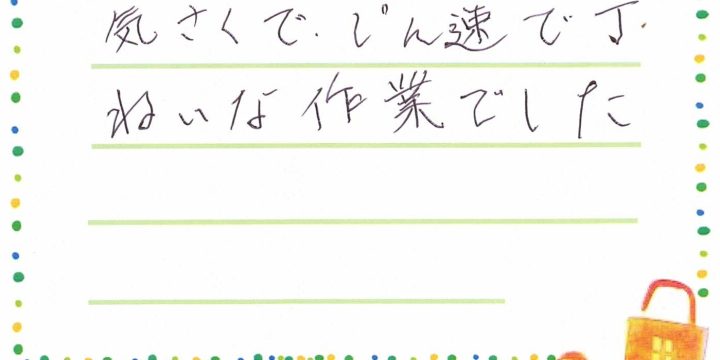 気さくで、じん速で丁
ねいな作業でした